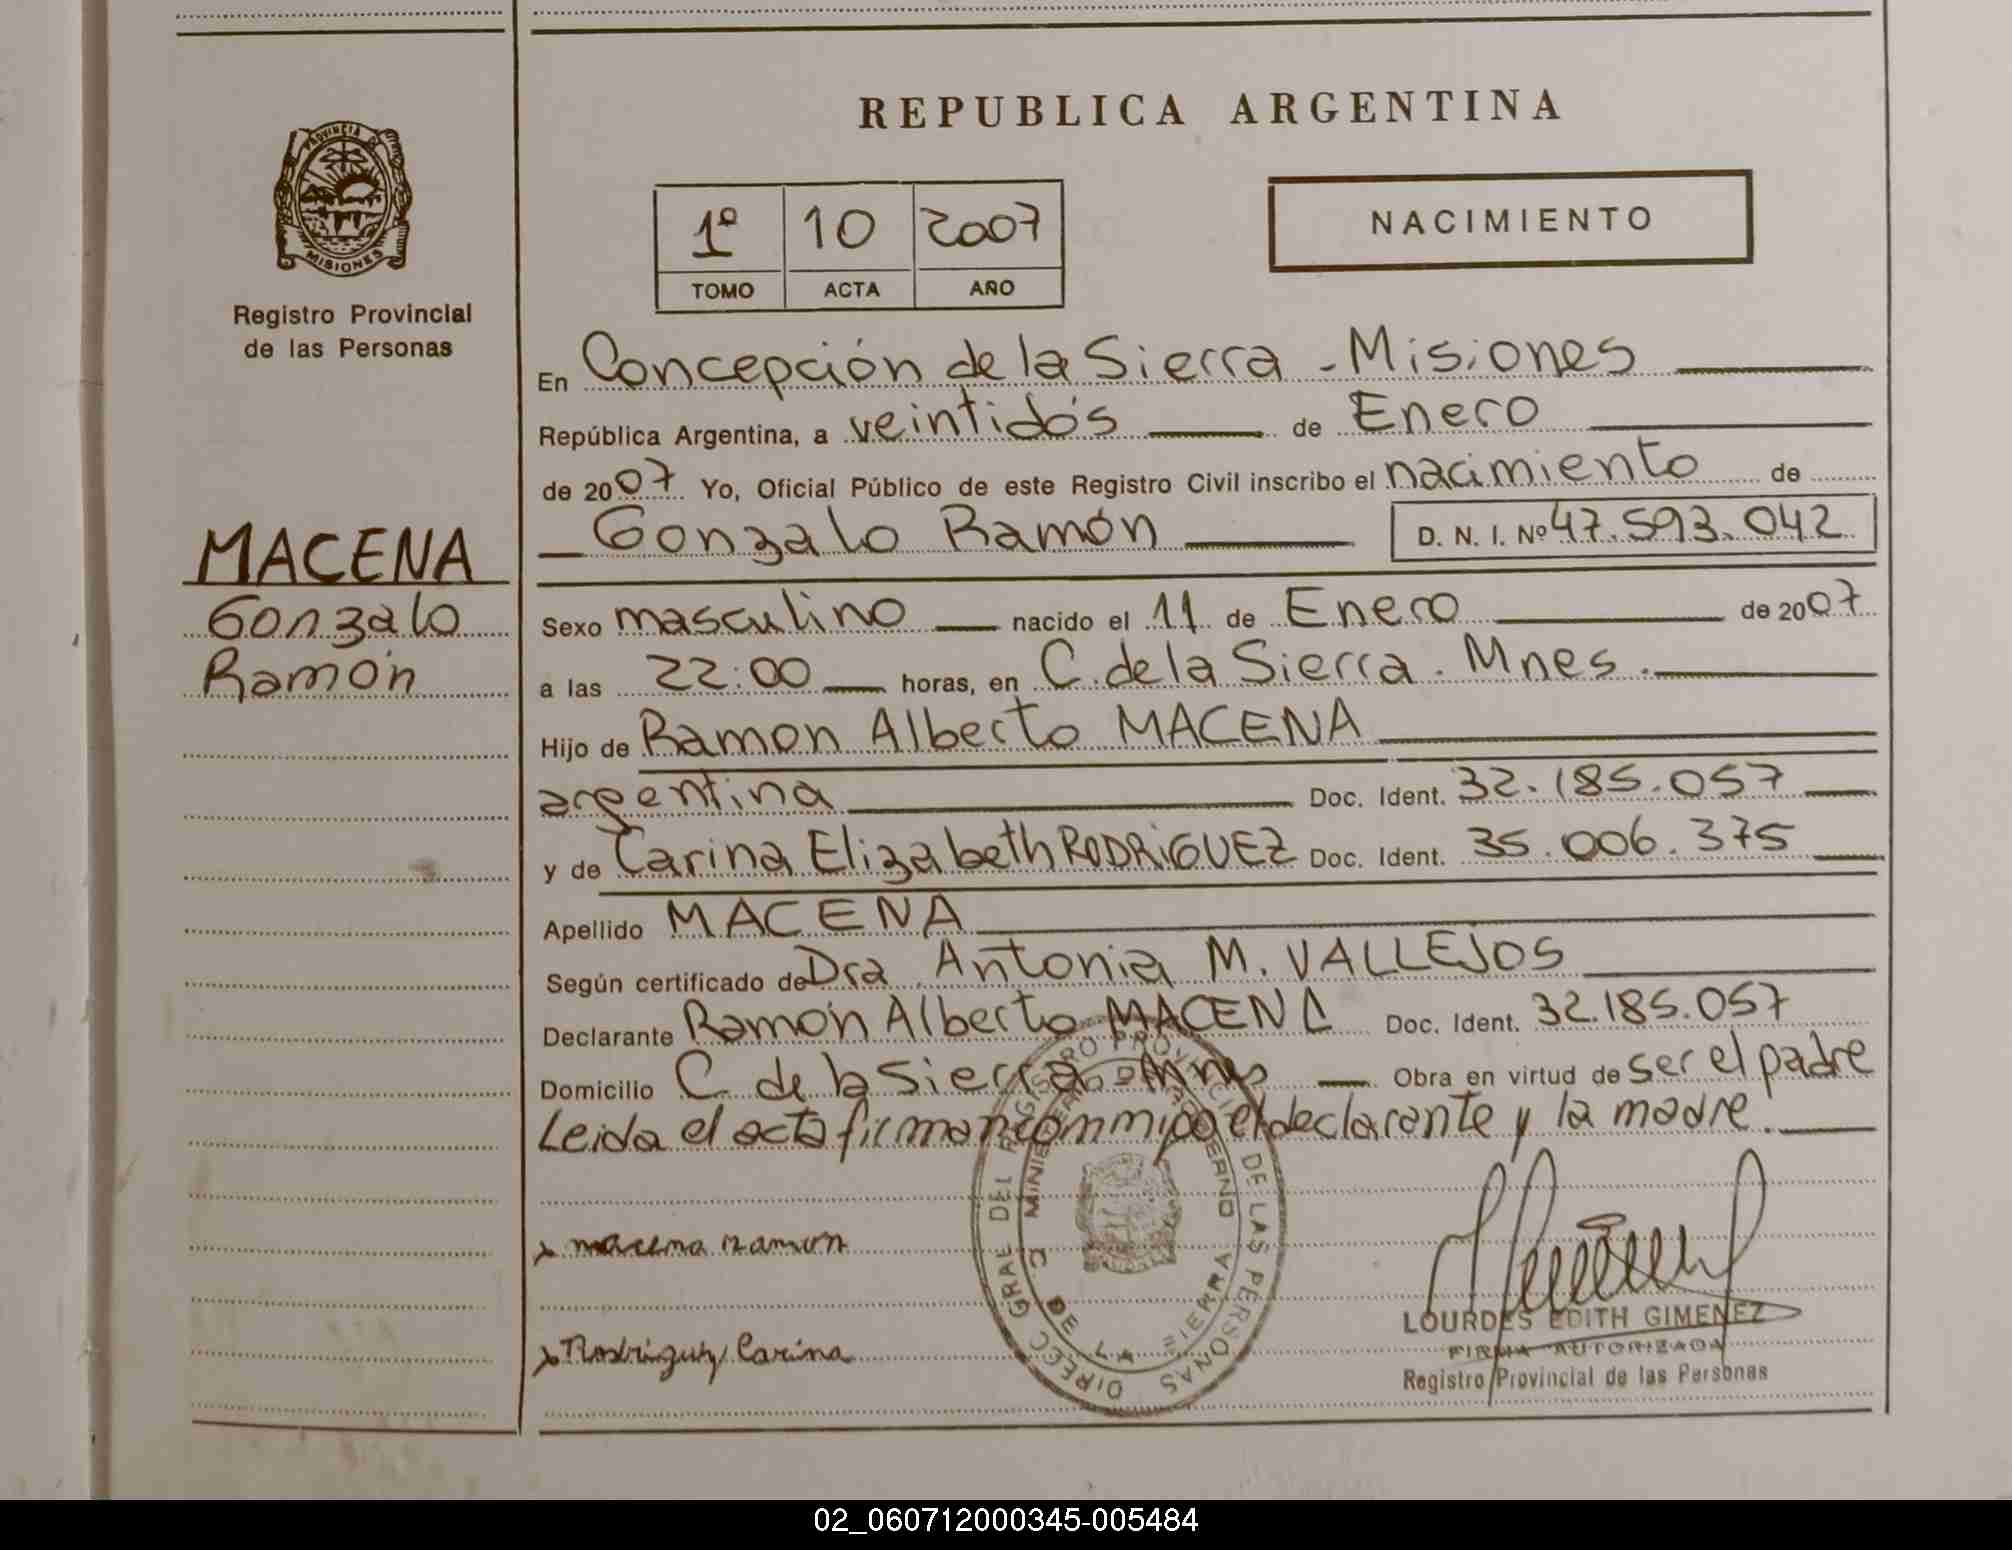 REPUBLICA ARGENTINA
PROVINCIA DE
MISIONES
Registro Provincial
de las Personas
1º 10 2007
TOMO ACTA AÑO
NACIMIENTO
En Concepción de la Sierra - Misiones
República Argentina, a veintidós de Enero
de 2007 Yo, Oficial Público de este Registro Civil inscribo el nacimiento de
Gonzalo Ramón D. N. I. Nº 47.593.042
MACENA
Gonzalo
Ramón
Sexo masculino nacido el 11 de Enero de 2007
a las 22:00 horas, en C. de la Sierra. Mnes.
Hijo de Ramon Alberto MACENA
argentina Doc. Ident. 32.185.057
y de Carina Elizabeth RODRIGUEZ Doc. Ident. 35.006.375
Apellido MACENA
Según certificado de Dra. Antonia M. VALLEJOS
Declarante Ramón Alberto MACENA Doc. Ident. 32.185.057
Domicilio C. de la Sierra - Mnes Obra en virtud de ser el padre
Leida el acta firman conmigo el declarante y la madre.
x macena ramon
x Rodriguez Carina
DIREC. GRAL. DEL REGISTRO PROVINCIAL DE LAS PERSONAS
C. DE LA SIERRA
LOURDES EDITH GIMENEZ
FIRMA AUTORIZADA
Registro Provincial de las Personas
02_060712000345-005484